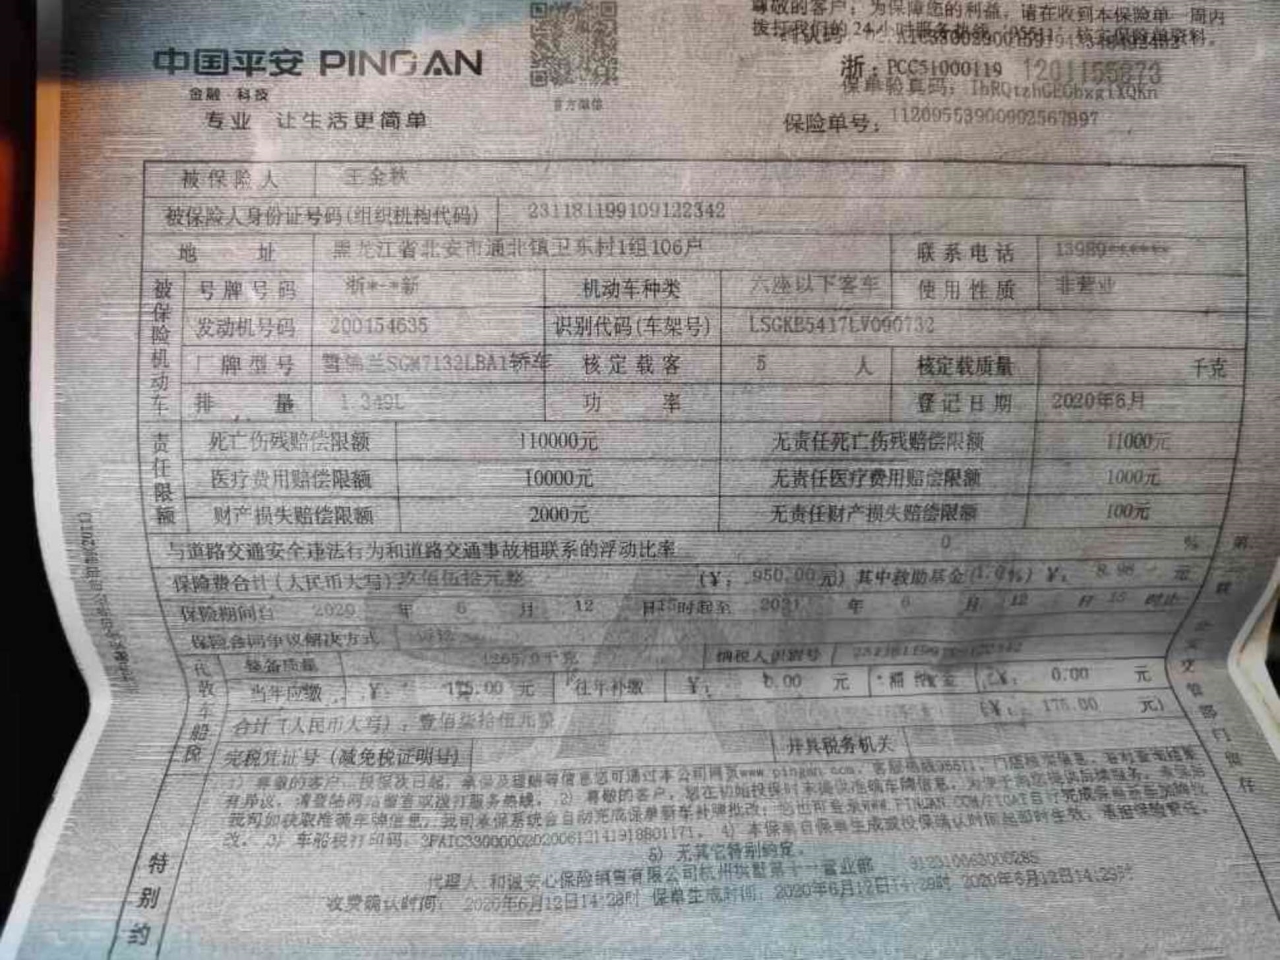 尊敬的客户：为保障您的利益，请在收到本保险单一周内
拨打我们的24小时服务热线 95511 核实保险单资料。
中国平安 PING AN
金融·科技
专业 让生活更简单
官方微信
浙：PCC51000119 1201155873
保单验真码：
保险单号：11209553900902567897
被保险人 王金秋
被保险人身份证号码(组织机构代码) 231181199109122342
地址 黑龙江省北安市通北镇卫东村1组106户 联系电话 13989******
被保险机动车
号牌号码 浙*-*新 机动车种类 六座以下客车 使用性质 非营业
发动机号码 200154635 识别代码(车架号) LSGKB5417LV090732
厂牌型号 雪佛兰SGM7132LBA1轿车 核定载客 5 人 核定载质量 千克
排量 1.349L 功率 登记日期 2020年6月
责任限额
死亡伤残赔偿限额 110000元 无责任死亡伤残赔偿限额 11000元
医疗费用赔偿限额 10000元 无责任医疗费用赔偿限额 1000元
财产损失赔偿限额 2000元 无责任财产损失赔偿限额 100元
与道路交通安全违法行为和道路交通事故相联系的浮动比率 0 %
保险费合计(人民币大写) 玖佰伍拾元整 (¥：950.00元) 其中救助基金(1.0%) ¥：8.96 元
保险期间自 2020 年 6 月 12 日15时起至 2021 年 6 月 12 日 15 时止
保险合同争议解决方式
代收车船税
整备质量 千克 纳税人识别号
当年应缴 ¥： 175.00 元 往年补缴 ¥： 0.00 元 滞纳金 ¥： 0.00 元
合计(人民币大写)：壹佰柒拾伍元整 (¥： 175.00 元)
完税凭证号(减免税证明号) 开具税务机关
特别约
1) 尊敬的客户：投保次日起，承保及理赔等信息您可通过本公司网页www.pingan.com、客服热线95511、门店核实信息。
有异议，请登陆网站留言或拨打服务热线。2) 尊敬的客户，您在初始投保时未提供准确车牌信息，为便于向您提供后续服务，
我司如获取准确车牌信息，我司承保系统会自动完成保单新车补牌批改；
改。3) 车船税打印码：3PAIC330000020200612141918801171。4) 本保单自保单生成或投保确认时间起即时生效，承担保险责任。
5) 无其它特别约定。
代理人：和诚安心保险销售有限公司杭州拱墅第十一营业部
收费确认时间： 2020年6月12日14:28时 保单生成时间：2020年6月12日14:29时 2020年6月12日14:29时